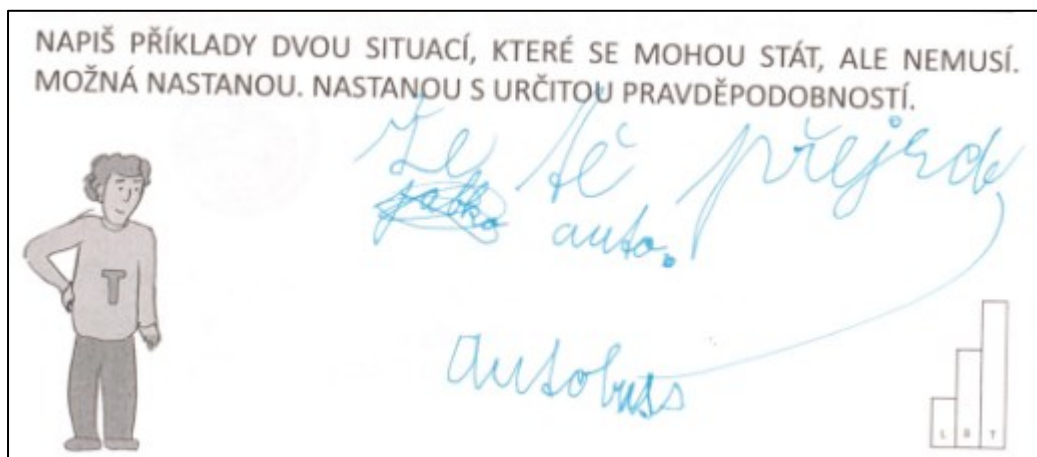 NAPIŠ PŘÍKLADY DVOU SITUACÍ, KTERÉ SE MOHOU STÁT, ALE NEMUSÍ.
MOŽNÁ NASTANOU. NASTANOU S URČITOU PRAVDĚPODOBNOSTÍ.
Že tě přejede
auto.
T
autobus
L B T